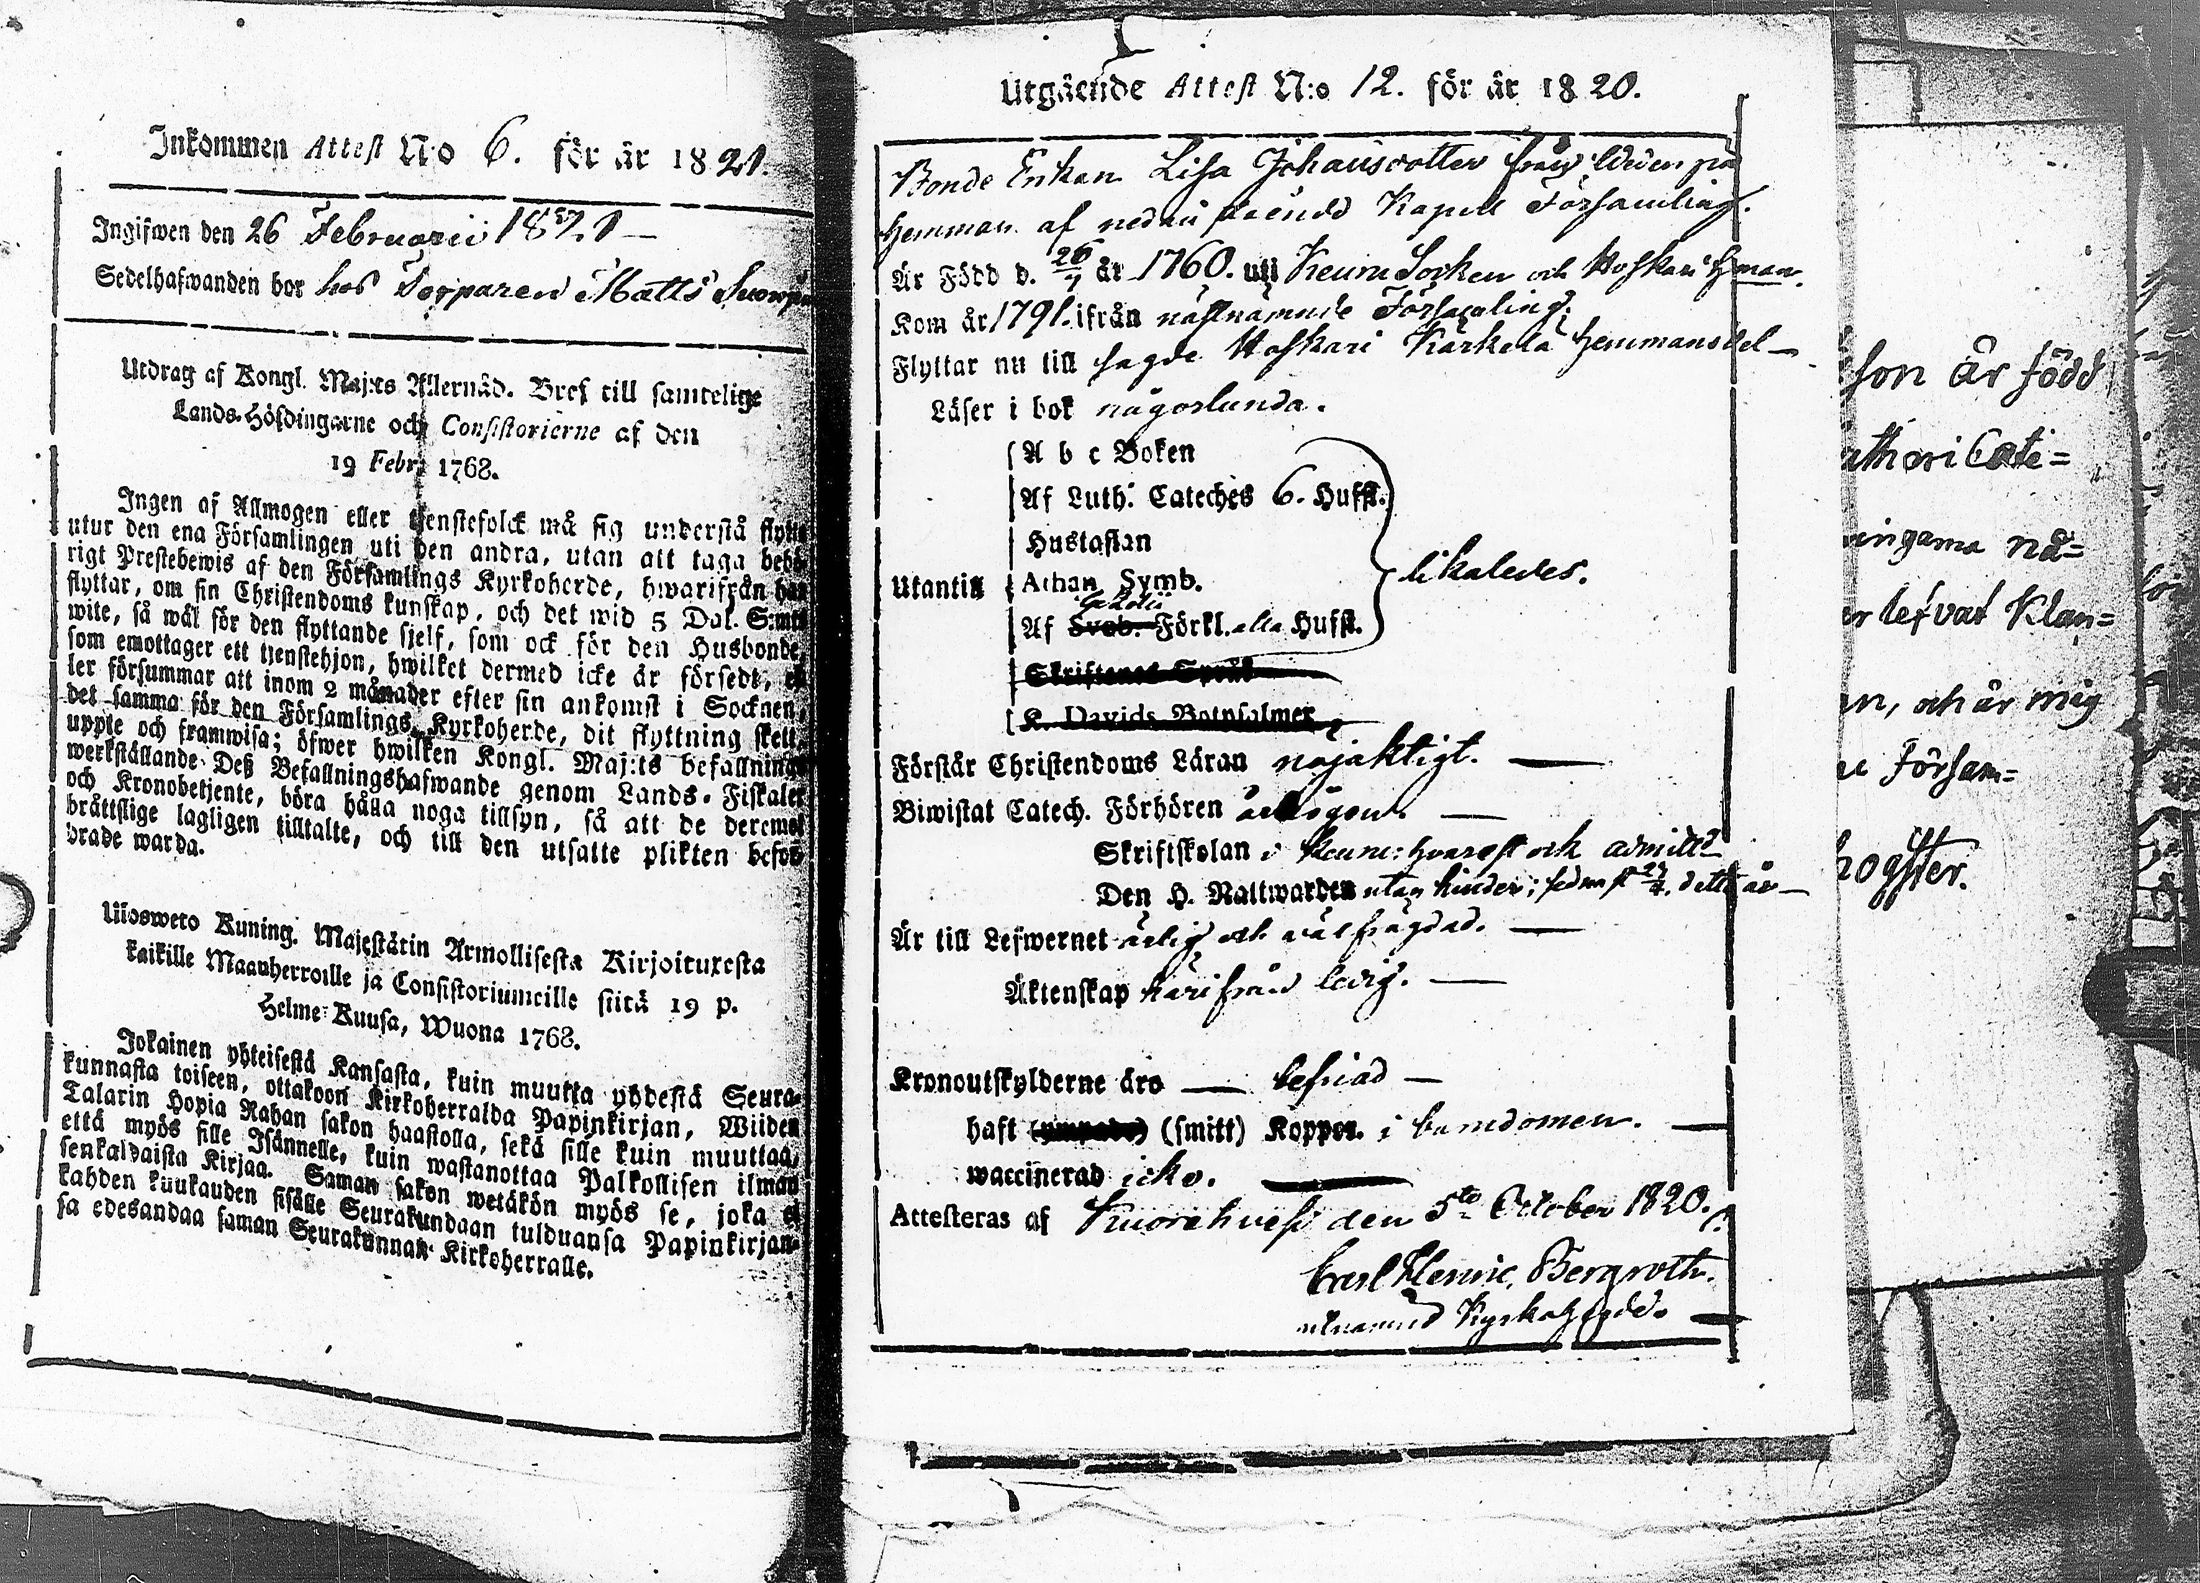 Inkommen Attest N:o 6. för år 1821.
Ingifwen den 26 Februarii 1821 —
Sedelhafwanden bor hos Torparen Matts
Utdrag af Kongl. Maj:ts Allernåd. Bref till samtelige
Lands-Höfdingarne och Consistorierne af den
19 Febr. 1768.
Ingen af Allmogen eller tjenstefolck må sig understå flytta
utur den ena Församlingen uti den andra, utan att taga behö-
rigt Prestebewis af den Församlings Kyrkoherde, hwarifrån han
flyttar, om sin Christendoms kunskap, och det wid 5 Dal. S:mts
wite, så wäl för den flyttande sjelf, som ock för den Husbonde,
som emottager ett tjenstehjon, hwilket dermed icke är försedt, el-
ler försummar att inom 2 månader efter sin ankomst i Socknen,
det samma för den Församlings Kyrkoherde, dit flyttning skett,
uppte och framwisa; öfwer hwilken Kongl. Maj:ts befallnings
werkställande Deß Befallningshafwande genom Lands-Fiskaler
och Kronobetjente, böra hålla noga tillsyn, så att de deremot
bråttslige lagligen tilltalte, och till den utsatte plikten befor-
drade warda.
Ulosweto Kuning. Majestätin Armollisesta Kirjoituxesta
kaikille Maanherroille ja Consistoriumeille siitä 19 p.
Helme-Kuusa, Wuona 1768.
Jokainen yhteisestä Kansasta, kuin muutta yhdestä Seura-
kunnasta toiseen, ottakoon Kirkoherralda Papinkirjan, Wiiden
Talarin Hopia Rahan sakon haastolla, sekä sille kuin muuttaa,
että myös sille Isännelle, kuin wastanottaa Palkollisen ilman
senkaldaista Kirjaa. Saman sakon wetäkön myös se, joka ei
kahden kuukauden sisälle Seurakundaan tulduansa Papinkirjan-
sa edesandaa saman Seurakunnan Kirkoherralle.
Utgående Attest N:o 12. för år 1820.
Bonde Enkan Lisa Johansdotter från
Hemman af nedan stående Kapell Församling.
Är Född d. 26/7 år 1760. uti Keuru Socken och Hoskari Hman.
Kom år 1791. ifrån nästnämnde Församling.
Flyttar nu till sagde Hoskari Kärkelä Hemmansdel —
Läser i bok någorlunda.
A b c Boken
Af Luth. Cateches 6. Hufst.
Hustaflan
Utantill Athan. Symb. likaledes.
Af Sveb. Förkl. alla Hufst.
Skriftenes Språk
K. Davids Botpsalmer
Förstår Christendoms Läran nöjaktigt. —
Biwistat Catech. Förhören —
Skriftskolan i Keuru: hvarest och admitt.
Den H. Nattwarden utan hinder; sednast 24/4. detta år —
Är till Lefwernet ärlig och välfrägdad. —
Äktenskap härifrån ledig. —
Kronoutskylderne äro — befriad —
haft (ympade) (smitt) Koppor. i barndomen. —
waccinerad icke. —
Attesteras af Kuorehvesi den 5te October 1820.
Carl Henric Bergroth.
Kyrkoherde.
son är född
Cate=
ingarna nå=
lefvat Klan=
n, och är mig
Försam=